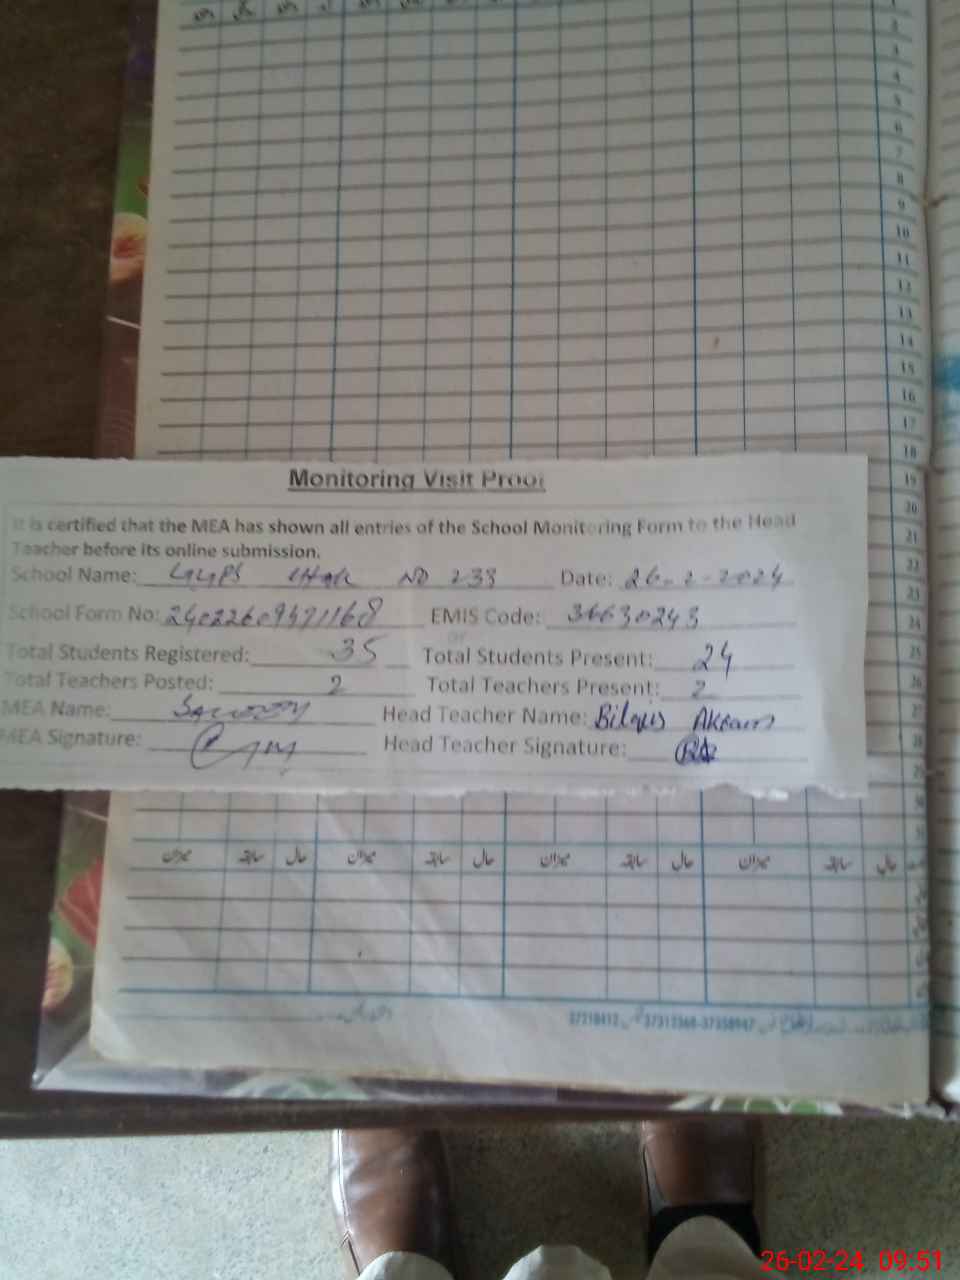 1
2
3
4
5
6
7
8
9
10
11
12
13
14
15
16
17
18
19
20
21
22
23
24
25
26
27
28
29
Monitoring Visit Proof
It is certified that the MEA has shown all entries of the School Monitoring Form to the Head
Teacher before its online submission.
School Name: GGPS CHAK NO 233 Date: 26-2-2024
School Form No: EMIS Code: 36630243
Total Students Registered: 35 Total Students Present: 24
Total Teachers Posted: 2 Total Teachers Present: 2
MEA Name: Head Teacher Name: Bilqis Akram
MEA Signature: Head Teacher Signature:
میزان سابقہ حال میزان سابقہ حال میزان سابقہ حال میزان سابقہ حال
26-02-24 09:51